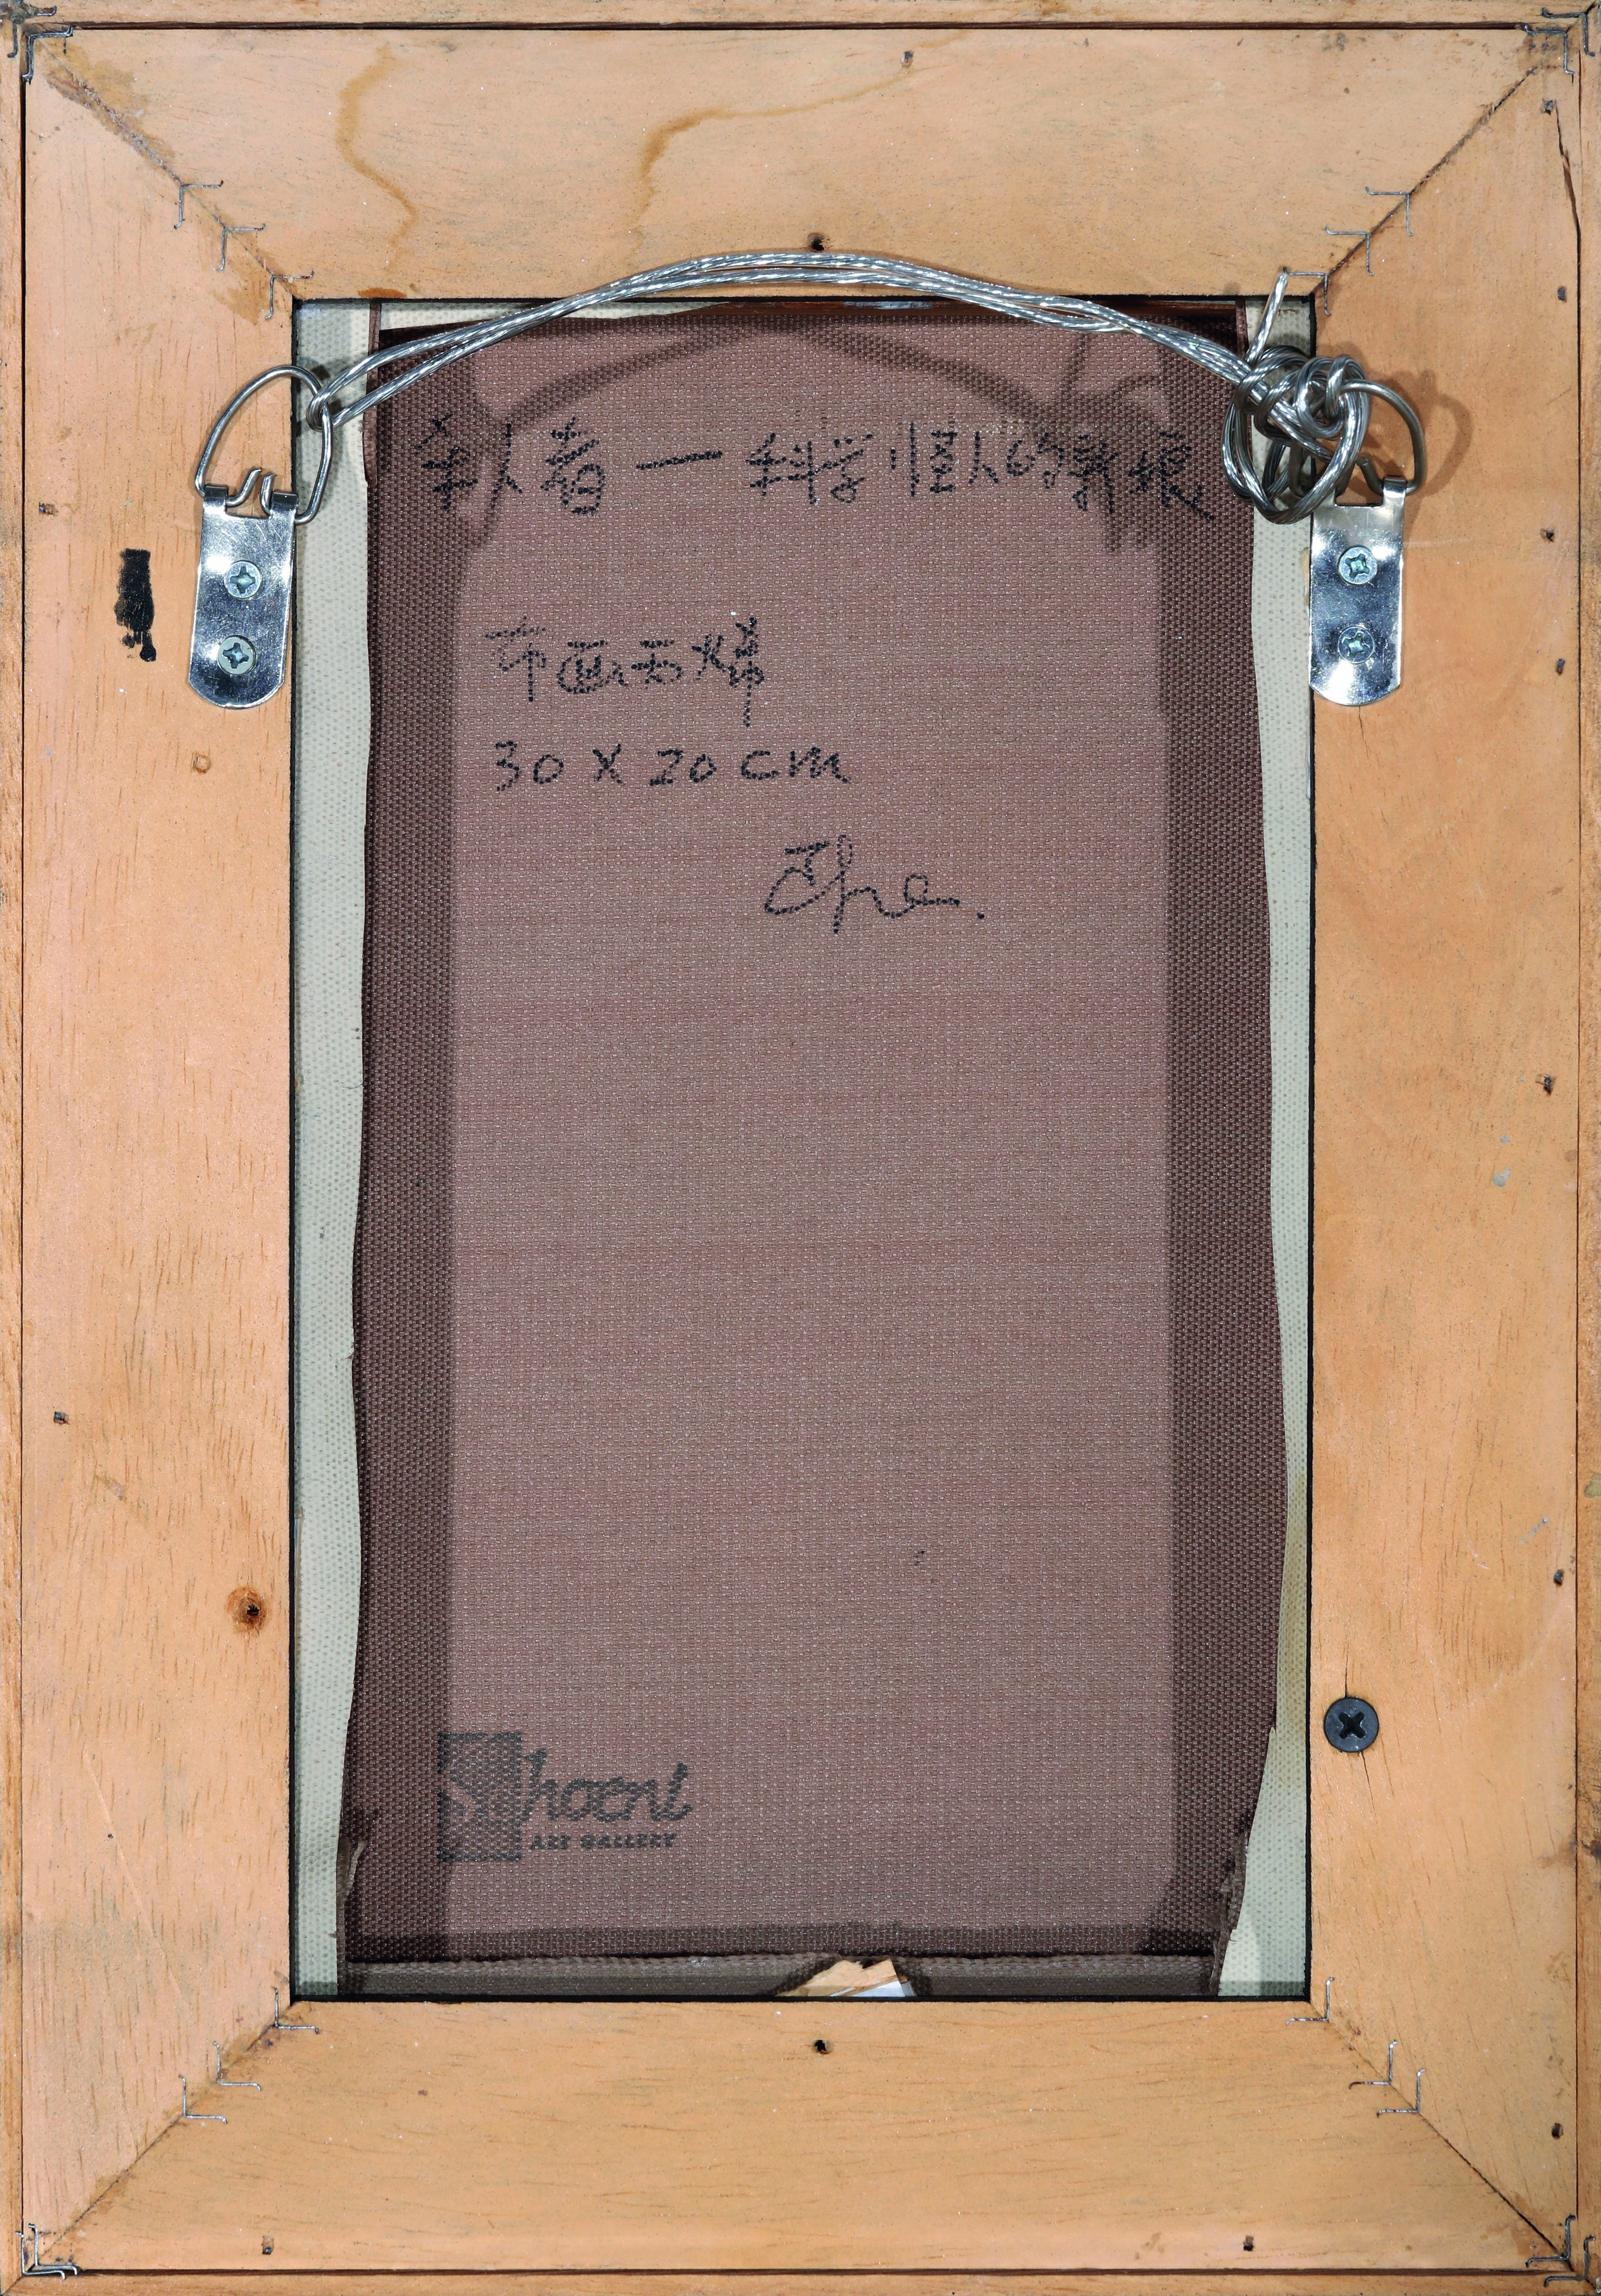 杀人者一科学怪人的新娘
布画丙烯
30 x 20 cm
Schoeni
ART GALLERY